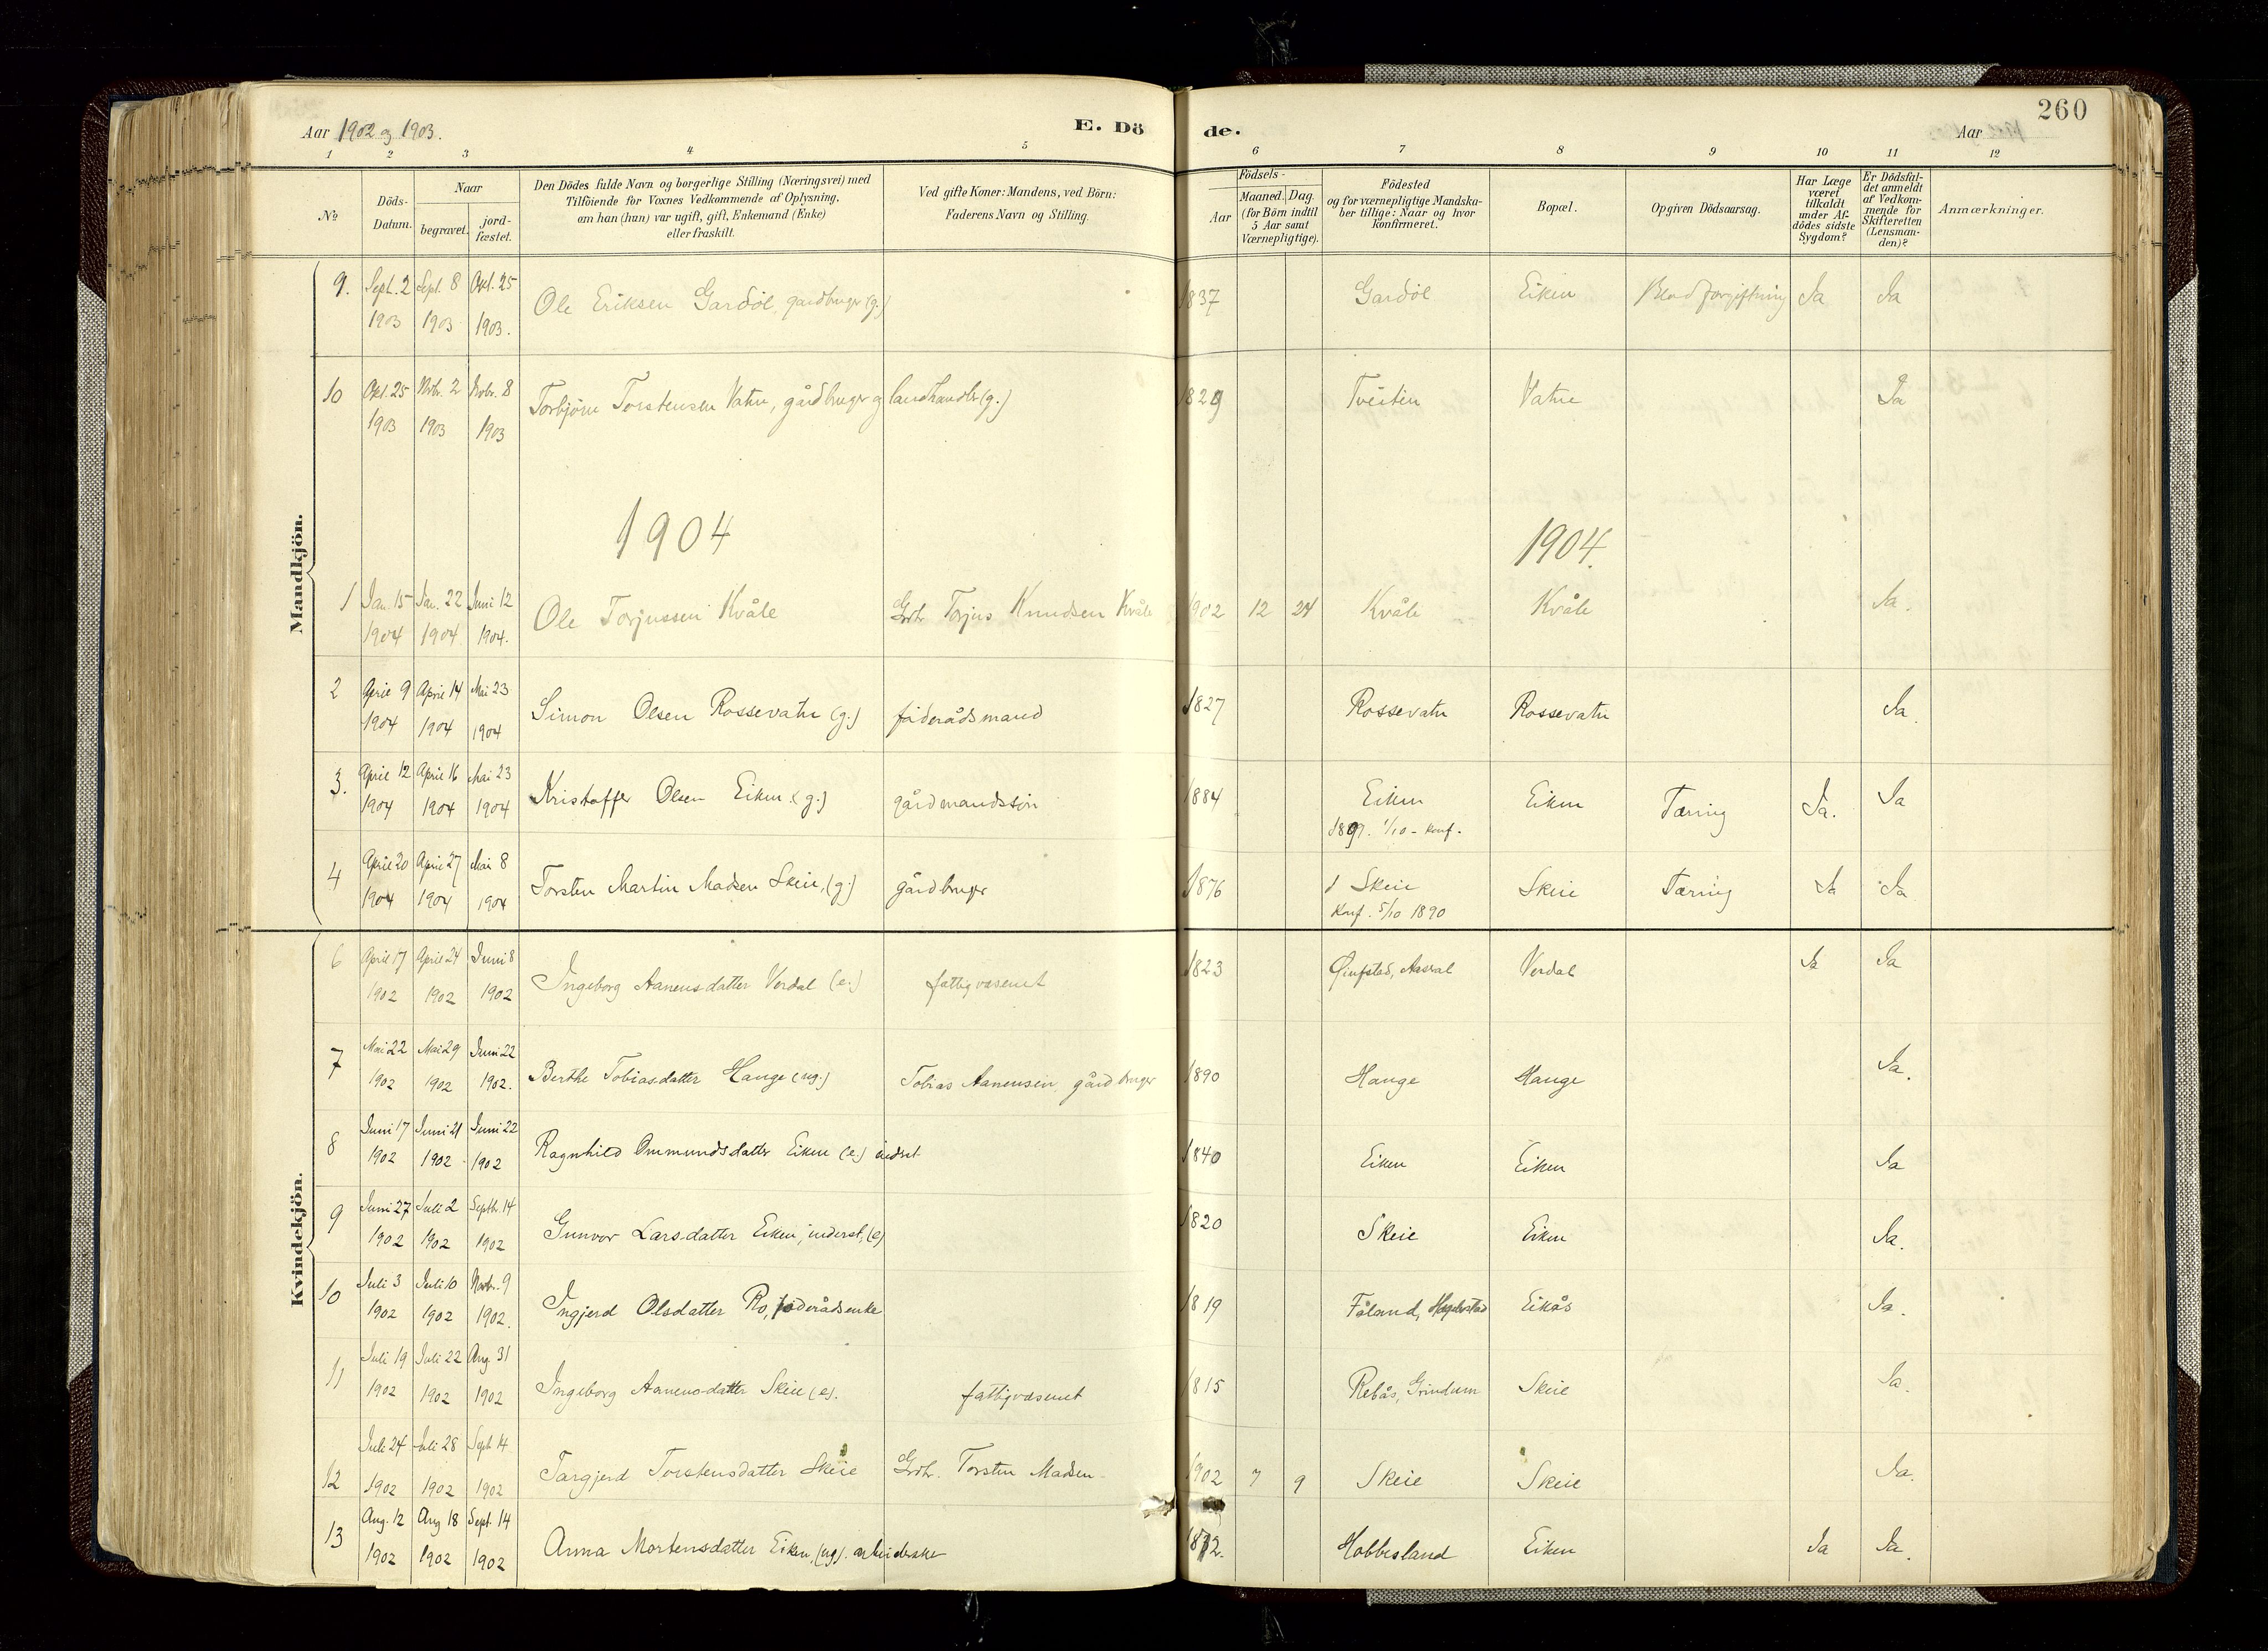 Aar 1902 og 1903.
E. Dö
de.
Aar
260
1 2 3 4 5 6 7 8 9 10 11 12
No Döds-Datum. Naar begravet. jord-fæstet. Den Dödes fulde Navn og borgerlige Stilling (Næringsvei) med Tilföiende for Voxnes Vedkommende af Oplysning, om han (hun) var ugift, gift, Enkemand (Enke) eller fraskilt. Ved gifte Koner: Mandens, ved Börn: Faderens Navn og Stilling. Födsels- Aar Maaned. Dag. (for Börn indtil 5 Aar samt Værnepligtige). Födested og for værnepligtige Mandskaber tillige: Naar og hvor konfirmeret. Bopæl. Opgiven Dödsaarsag. Har Læge været tilkaldt under Afdödes sidste Sygdom? Er Dödsfaldet anmeldt af Vedkommende for Skifteretten (Lensmanden)? Anmærkninger.
Mandkjön.
9. Sept. 2 1903 Sept. 8 1903 Okt. 25 1903. Ole Eriksen Gardöl, gardbruger (g.) 1837 Gardöl Eiken Blodforgiftning Ja Ja
10 Okt. 25 1903 Novbr. 2 1903 Novbr. 8 1903 Torbjörn Torstensen Vatne, gårdbruger og landhandler (g.) 1829 Tveiten Vatne Ja
1904 1904.
1 Jan. 15 1904 Jan. 22 1904 Juni 12 1904. Ole Torjussen Kvåle Grbr. Torjus Knudsen Kvåle 1902 12 24 Kvåle Kvåle Ja.
2 April 9 1904 April 14 1904 Mai 23 1904 Simon Olsen Rossevatn (g.) föderådsmand 1827 Rossevatn Rossevatn Ja.
3. April 12 1904 April 16 1904 Mai 23 1904 Kristoffer Olsen Eiken (g.) gårdmandssön 1884 Eiken 1899. 1/10 - konf. Eiken Tæring Ja. Ja
4 April 20 1904 April 27 1904 Mai 8 1904 Torsten Martin Madsen Skeie, (g.) gårdbruger 1876 Skeie Konf. 5/10 1890 Skeie Tæring Ja Ja
Kvindekjön.
6 April 17 1902 April 24 1902 Juni 8 1902 Ingeborg Aanensdatter Verdal (e.) fattigvæsenet 1823 Aaseral Verdal Ja Ja
7 Mai 22 1902 Mai 29 1902 Juni 22 1902. Berthe Tobiasdatter Hauge (ug.) Tobias Aanensen, gårdbruger 1890 Hauge Hauge Ja.
8 Juni 17 1902 Juni 21 1902 Juni 22 1902 Ragnhild Ommundsdatter Eiken (e.) inderst 1840 Eiken Eiken Ja
9 Juni 27 1902 Juli 2 1902 Septbr. 14 1902 Gunvor Larsdatter Eiken, inderst, (e) 1820 Skeie Eiken Ja.
10 Juli 3 1902 Juli 10 1902 Novbr. 9 1902. Ingjerd Olsdatter Ro, föderådsenke 1819 Fåland, Hægebostad Eikås Ja.
11 Juli 19 1902 Juli 22 1902 Aug. 31 1902 Ingeborg Aanensdatter Skeie (e). fattigvæsenet 1815 Rebås, Grindum Skeie Ja.
12 Juli 24 1902 Juli 28 1902 Sept. 14 1902 Targjerd Torstensdatter Skeie Grbr. Torsten Madsen 1902 7 9 Skeie Skeie Ja.
13 Aug. 12 1902 Aug 18 1902 Sept. 14 1902 Anna Mortensdatter Eiken, (ug). arbeiderske 1872. Hobbesland Eiken Ja Ja.